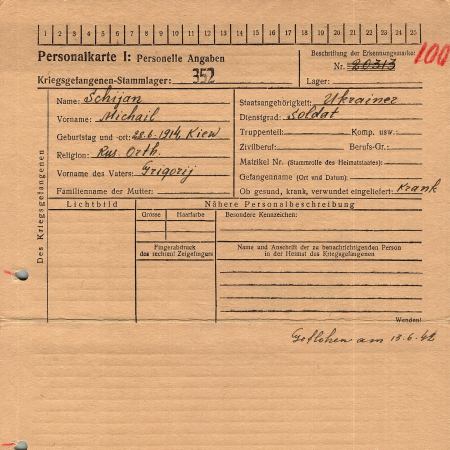 1 2 3 4 5 6 7 8 9 10 11 12 13 14 15 16 17 18 19 20 21 22 23 24 25
Personalkarte I: Personelle Angaben
Kriegsgefangenen-Stammlager: 352
Beschriftung der Erkennungsmarke:
Nr. 20313
100
Lager:
Des Kriegsgefangenen
Name: Schijan
Vorname: Michail
Geburtstag und -ort: 28.6.1914, Kiew
Religion: Rus. Orth.
Vorname des Vaters: Grigorij
Familienname der Mutter:
Staatsangehörigkeit: Ukrainer
Dienstgrad: Soldat
Truppenteil: Komp. usw.:
Zivilberuf: Berufs-Gr.:
Matrikel Nr. (Stammrolle des Heimatstaates):
Gefangennahme (Ort und Datum):
Ob gesund, krank, verwundet eingeliefert: Krank
Lichtbild
Nähere Personalbeschreibung
Grösse Haarfarbe
Besondere Kennzeichen:
Fingerabdruck
des rechten! Zeigefingers
Name und Anschrift der zu benachrichtigenden Person
in der Heimat des Kriegsgefangenen
Wenden!
Geflohen am 13.6.42